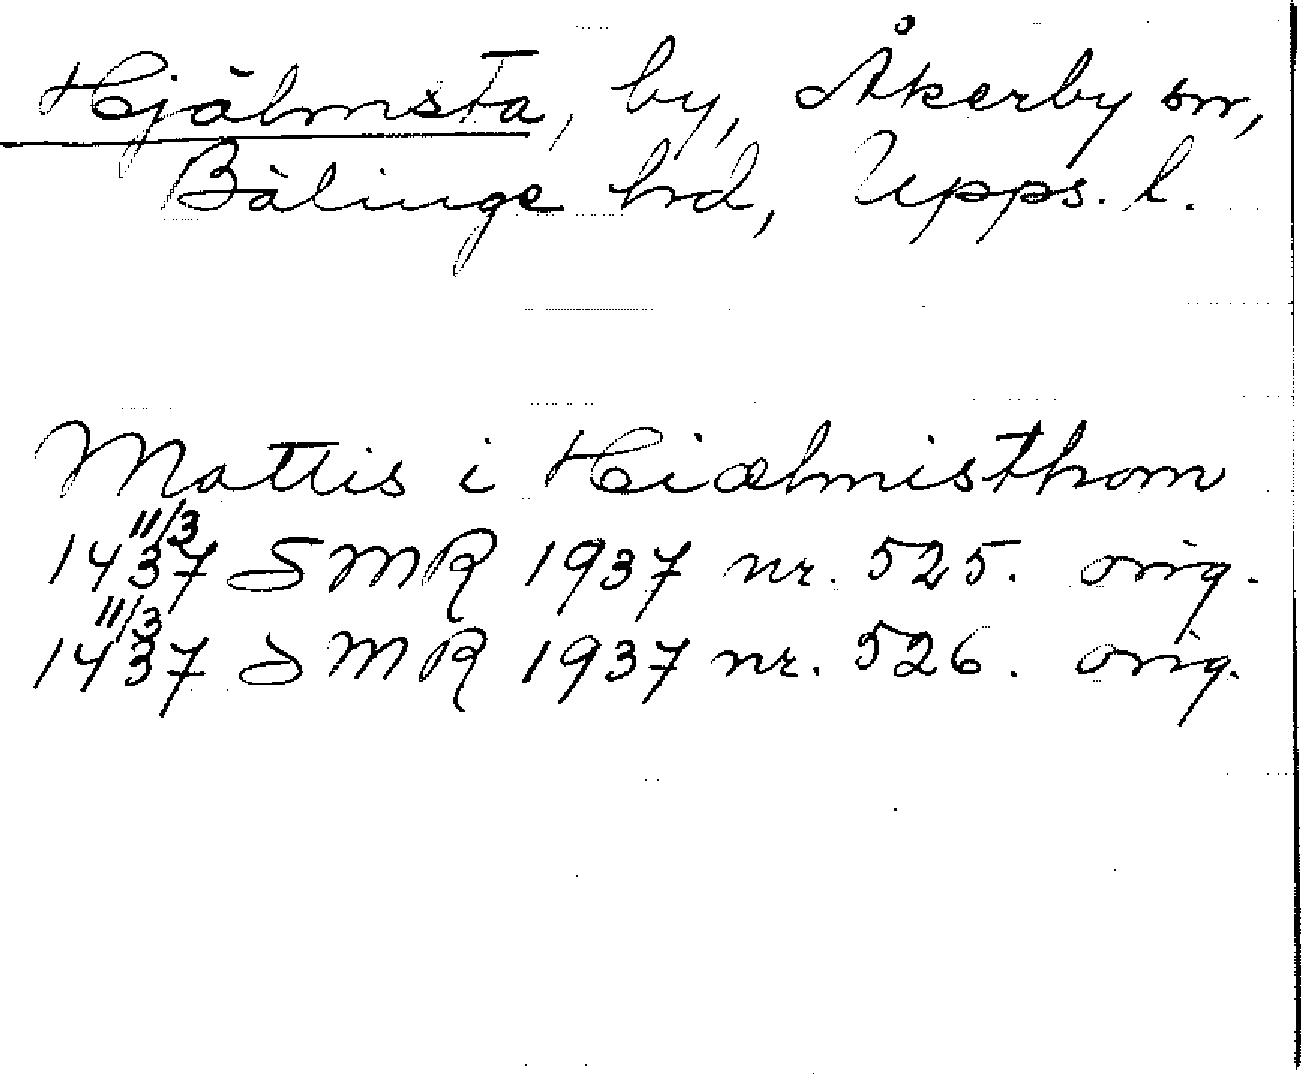 Hjälmsta, by, Åkerby sn,
Bälinge hrd, Upps. l.
Mattis i Hiælmisthom
11/3
1437 SMR 1937 nr. 525. orig.
11/3
1437 SMR 1937 nr. 526. orig.